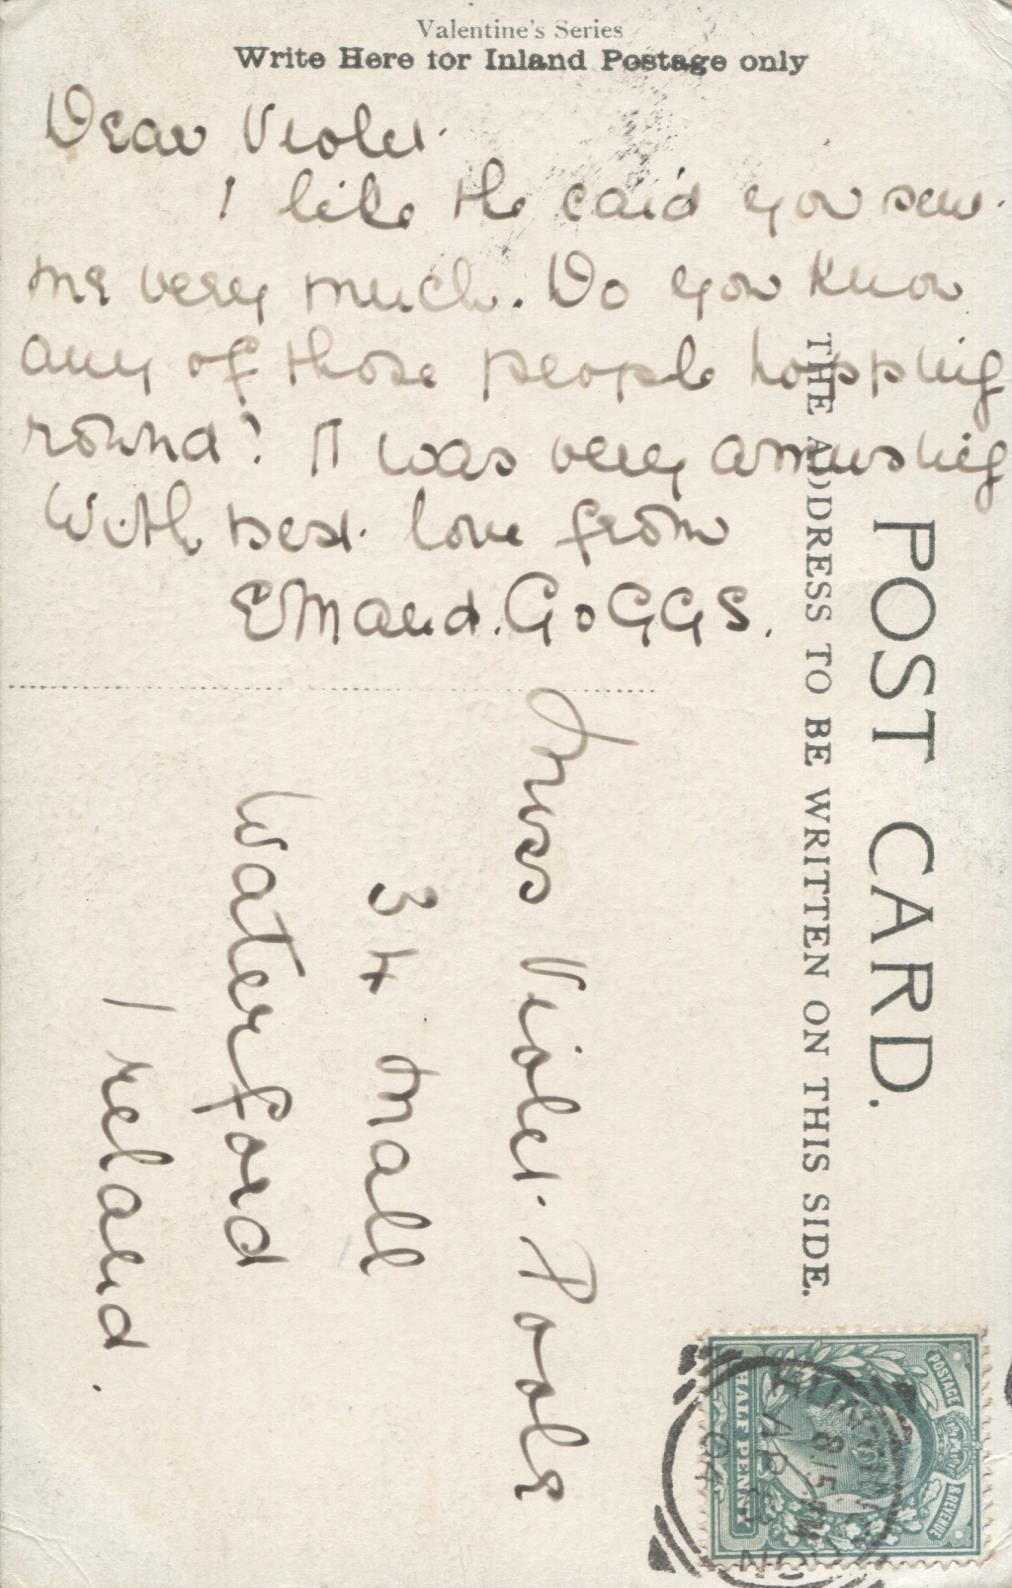 Valentine's Series
Write Here for Inland Postage only
Dear Violet.
I like the card you sent
me very much. Do you know
any of those people hopping
round? It was very amusing
With best love from
EMaud. GoGGS.
POST CARD.
THE ADDRESS TO BE WRITTEN ON THIS SIDE.
Miss Violet Poole
34 Mall
Waterford
Ireland.
POSTAGE & REVENUE
HALF PENNY
8.15 PM
AP
04